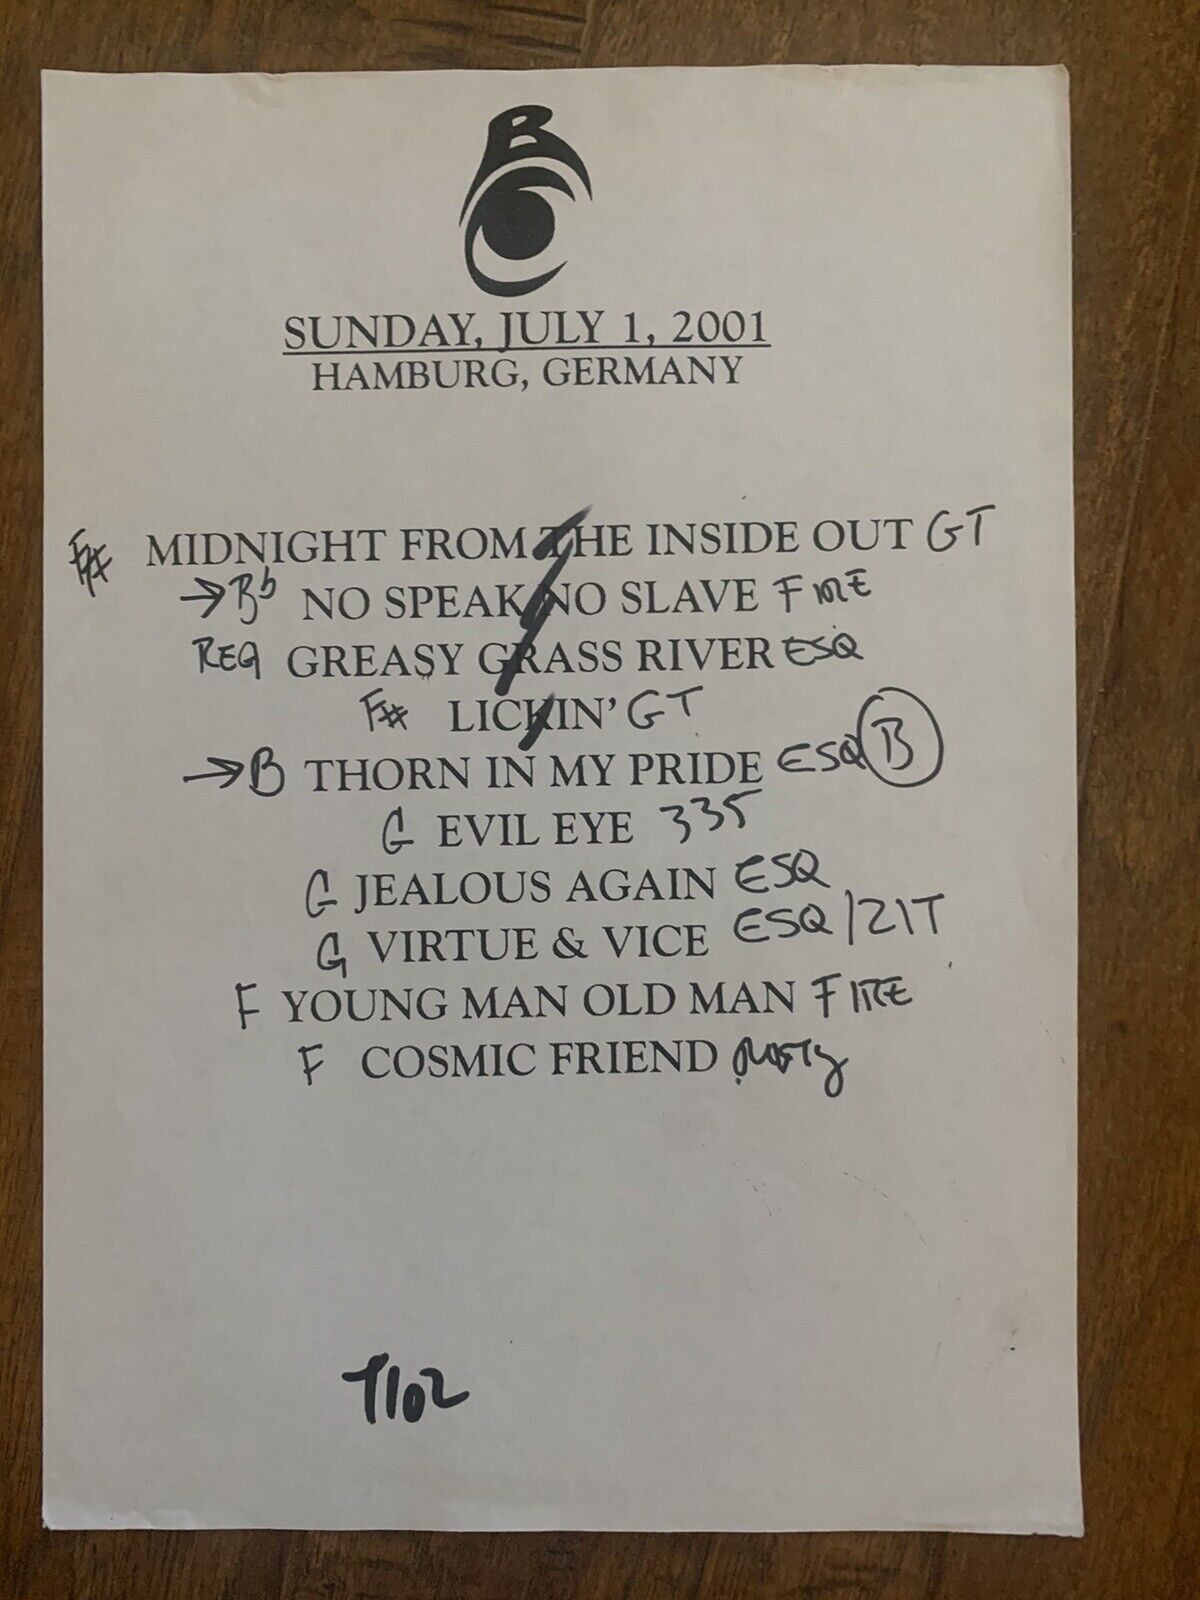 B C
SUNDAY, JULY 1, 2001
HAMBURG, GERMANY
F# MIDNIGHT FROM THE INSIDE OUT GT
→Bb NO SPEAK NO SLAVE FIRE
REG GREASY GRASS RIVER ESQ
F# LICKIN' GT
→B THORN IN MY PRIDE ESQ B
G EVIL EYE 335
G JEALOUS AGAIN ESQ
G VIRTUE & VICE ESQ/ZIT
F YOUNG MAN OLD MAN FIRE
F COSMIC FRIEND